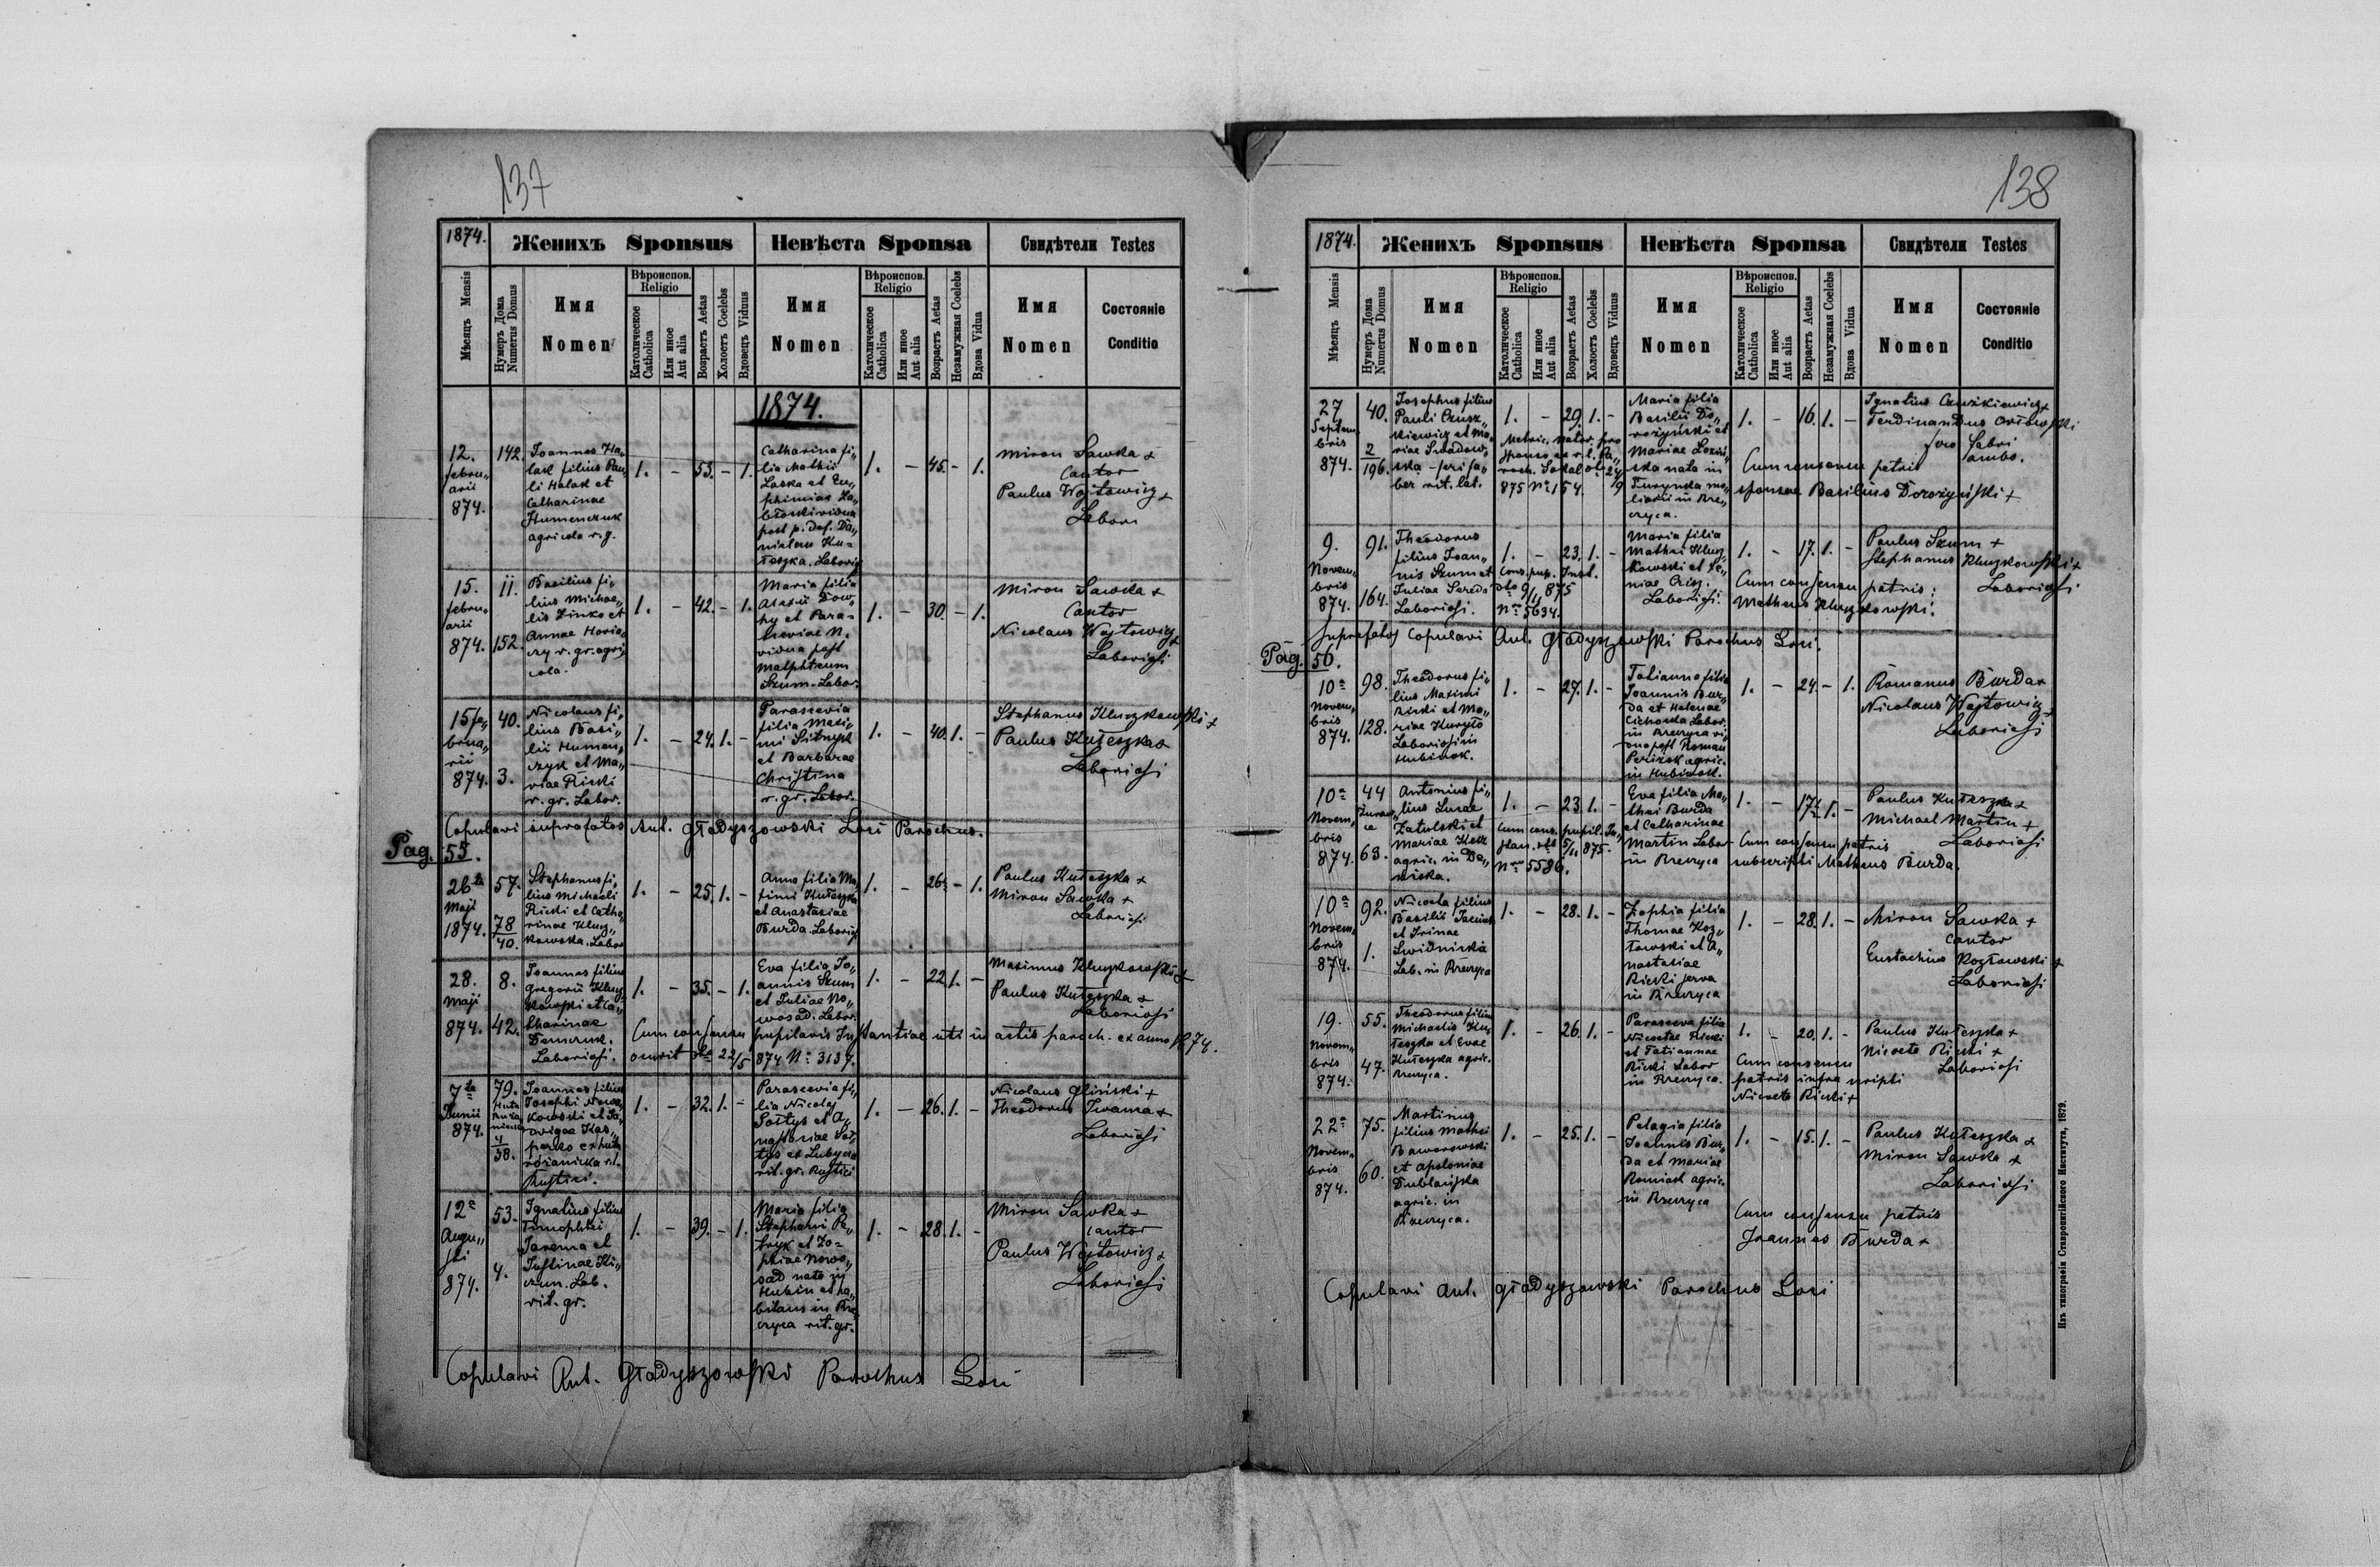 137
1874.
Женихъ Sponsus
Невѣста Sponsa
Свидѣтели Testes
Мѣсяцъ Mensis
Нумеръ Дома
Numerus Domus
Имя
Nomen
Вѣроиспов.
Religio
Католическое
Catholica
Или иное
Aut alia
Возрастъ Aetas
Холостъ Coelebs
Вдовецъ Viduus
Имя
Nomen
Вѣроиспов.
Religio
Католическое
Catholica
Или иное
Aut alia
Возрастъ Aetas
Незамужная Coelebs
Вдова Vidua
Имя
Nomen
Состояніе
Conditio
1874.
12.
febru„
arii
874.
142.
Joannes Ha„
lak filius Pau„
li Halak et
Catharinae
Humenczuk
agricola r. g.
1. - 53. - 1.
Catharina fi„
lia Mathii
Laska et Eu„
phimiae
vidua
post p. def. Da„
nielem Ku=
łeszka. Laborios
1. - 45. - 1.
Miron Sawka +
Cantor
Paulus Wojtowicz +
Labori
15.
febru„
arii
874.
11.
152.
Basilius fi„
lius Michae„
lis Zinko et
Annae
r. gr. agri„
cola.
1. - 42. - 1.
Maria filia
et Para=
sceviae N.
vidua post
Szum - Labor.
1. - 30. - 1.
Miron Sawka +
Cantor
Nicolaus Wojtowicz +
Laboriosi
15 fe„
brua„
rii
874.
40.
3.
Nicolaus fi„
lius Basi„
lii Humen„
czyk et Ma„
riae Ricki
r. gr. Labor.
1. - 24. 1. -
Parascevia
filia Maxi„
mi Sitnyk
et Barbarae
Christina
r. gr. Labor.
1. - 40. 1. -
Stephanus Kluczkowski +
Paulus Kułeszka +
Laboriosi
Copulavi suprafatos Ant. Gładyszowski Loci Parochus.
Pag. 55.
26ta
Maji
1874.
57.
78
40.
Stephanus fi„
lius Michaeli
Ricki et Catha„
rinae Klucz„
kowska. Labor
1. - 25. 1. -
Anna filia Ma„
ximi Kułeszka
et Anastasiae
Burda. Laborios
1. - 26. - 1.
Paulus Kułeszka +
Miron Sawka +
Laboriosi
28.
Maji
874.
8.
42.
Joannes filius
Gregorii Klucz„
kowski et Ca„
tharinae
Demczuk.
Laboriosi.
1. - 35. - 1.
Eva filia Jo„
annis Szum
et Juliae No„
wosad. Labor.
1. - 22. 1. -
Maximus Kluczkowski +
Paulus Kułeszka +
Laboriosi
Cum consensu pupilaris Instantiae uti in actis paroch. ex anno 1874.
dto 22/5 874 No 3137.
7ta
Junii
874.
79.
4
38.
Joannes filius
Josephi Nowa„
kowski et
Rustici.
1. - 32. 1. -
Parascevia fi„
lia Nicolai
Sołtys et A„
nastasiae Soł„
tys ex Lubycza
rit. gr. Rustici
1. - 26. 1. -
Nicolaus Gliński +
Theodorus Jwama +
Laboriosi
12a
Augu„
sti
874.
53.
4.
Ignatius filius
Timophtei
Jarema et
Justinae
Lab.
rit. gr.
1. - 39. - 1.
Maria filia
Stephani Pe„
tryk et Zo=
phiae Nowo„
sad nata in
Hubin et ha„
bitans in Rze„
czyca rit. gr.
1. - 28. 1. -
Miron Sawka +
Cantor
Paulus Wojtowicz +
Laboriosi
Copulavi Ant. Gładyszowski Parochus Loci
138
1874.
Женихъ Sponsus
Невѣста Sponsa
Свидѣтели Testes
Мѣсяцъ Mensis
Нумеръ Дома
Numerus Domus
Имя
Nomen
Вѣроиспов.
Religio
Католическое
Catholica
Или иное
Aut alia
Возрастъ Aetas
Холостъ Coelebs
Вдовецъ Viduus
Имя
Nomen
Вѣроиспов.
Religio
Католическое
Catholica
Или иное
Aut alia
Возрастъ Aetas
Незамужная Coelebs
Вдова Vidua
Имя
Nomen
Состояніе
Conditio
27
Septem„
bris
874.
40.
2
196.
Josephus filius
Pauli Czusz„
kiewicz et Ma„
riae
ska - ferri fa„
ber rit. lat.
1. - 29. 1. -
Metric. nator. pro
sponso ex r. l. Pa„
roch. Sokal
875 No 154.
Maria filia
Basilii Do„
rożyński et
Mariae
ska nata in
in Rze„
czyca.
1. - 16. 1. -
Ignatius Czuszkiewicz +
Ferdinandus Orłowski
fabri
ambo.
Cum consensu patris
sponsae Basilius Dorożyński +
9.
Novem„
bris
874.
91.
164.
Theodorus
filius Joan„
nis Szum et
Juliae Sereda
Laboriosi.
1. - 23. 1. -
Cons. pup. Inst.
dto 9/11 875
Nro 5634.
Maria filia
Mathei Klucz„
kowski et Xe„
niae
Laboriosi.
1. - 17. 1. -
Paulus Szum +
Stephanus Kluczkowski +
Laboriosi
Cum consensu patris:
Matheus Kluczkowski.
Suprafatos Copulavi Ant. Gładyszowski Parochus Loci.
Pag. 56.
10a
Novem„
bris
874.
98.
128.
Theodorus fi„
lius Maximi
Ricki et Ma„
riae Kuryło
Laboriosi in
Hubinok.
1. - 27. 1. -
Tatianna filia
Joannis Bur„
da et Helenae
Cichocka Labor.
in Rzeczyca vi„
dua post Roman
agric.
in Hubinok.
1. - 24. - 1.
Romanus Burda +
Nicolaus Wojtowicz +
Laboriosi
10a
Novem„
bris
874.
44
63.
Antonius fi„
lius Lucae
Zatulski et
Mariae
agric. in De„
niska.
1. - 23. 1. -
Cum cons. pupil. In„
stan. dto 5/11 875.
Nro 5586.
Eva filia Ma„
thei Burda
et Catharinae
Martin Labor
in Rzeczyca
1. - 17½ 1. -
Paulus Kułeszka +
Michael Martin +
Laboriosi
Cum consensu patris
subscripti Matheus Burda.
10a
Novem„
bris
874.
92.
1.
Nicoeta filius
Basilii
et Irinae
Swidnicka
Lab. in Rzeczyca
1. - 28. 1. -
Zophia filia
Thomae Koz„
łowski et A„
nastasiae
Ricki serva
in Rzeczyca
1. - 28. 1. -
Miron Sawka +
Cantor
Eustachius Kozłowski +
Laboriosi
19.
Novem„
bris
874.
55.
47.
Theodorus filius
Michaelis Ku„
łeszka et Evae
Kułeszka agric.
Rzeczyca.
1. - 26. 1. -
Parasceva filia
Nicoetae Ricki
et Tatiannae
Ricki Labor
in Rzeczyca.
1. - 20. 1. -
Paulus Kułeszka +
Nicoeta Ricki +
Laboriosi
Cum consensu
patris infra scripti
Nicoeta Ricki +
22a
Novem„
bris
874.
75.
60.
Martinus
filius Mathei
Baworowski
et Apoloniae
Dublańska
agric. in
Rzeczyca.
1. - 25. 1. -
Pelagia filia
Joannis Bur„
da et Mariae
Romiak agric.
in Rzeczyca
1. - 15. 1. -
Paulus Kułeszka +
Miron Sawka +
Laboriosi
Cum consensu patris
Joannes Burda +
Copulavi Ant. Gładyszowski Parochus Loci
Изъ типографіи Ставропигійского Института, 1879.